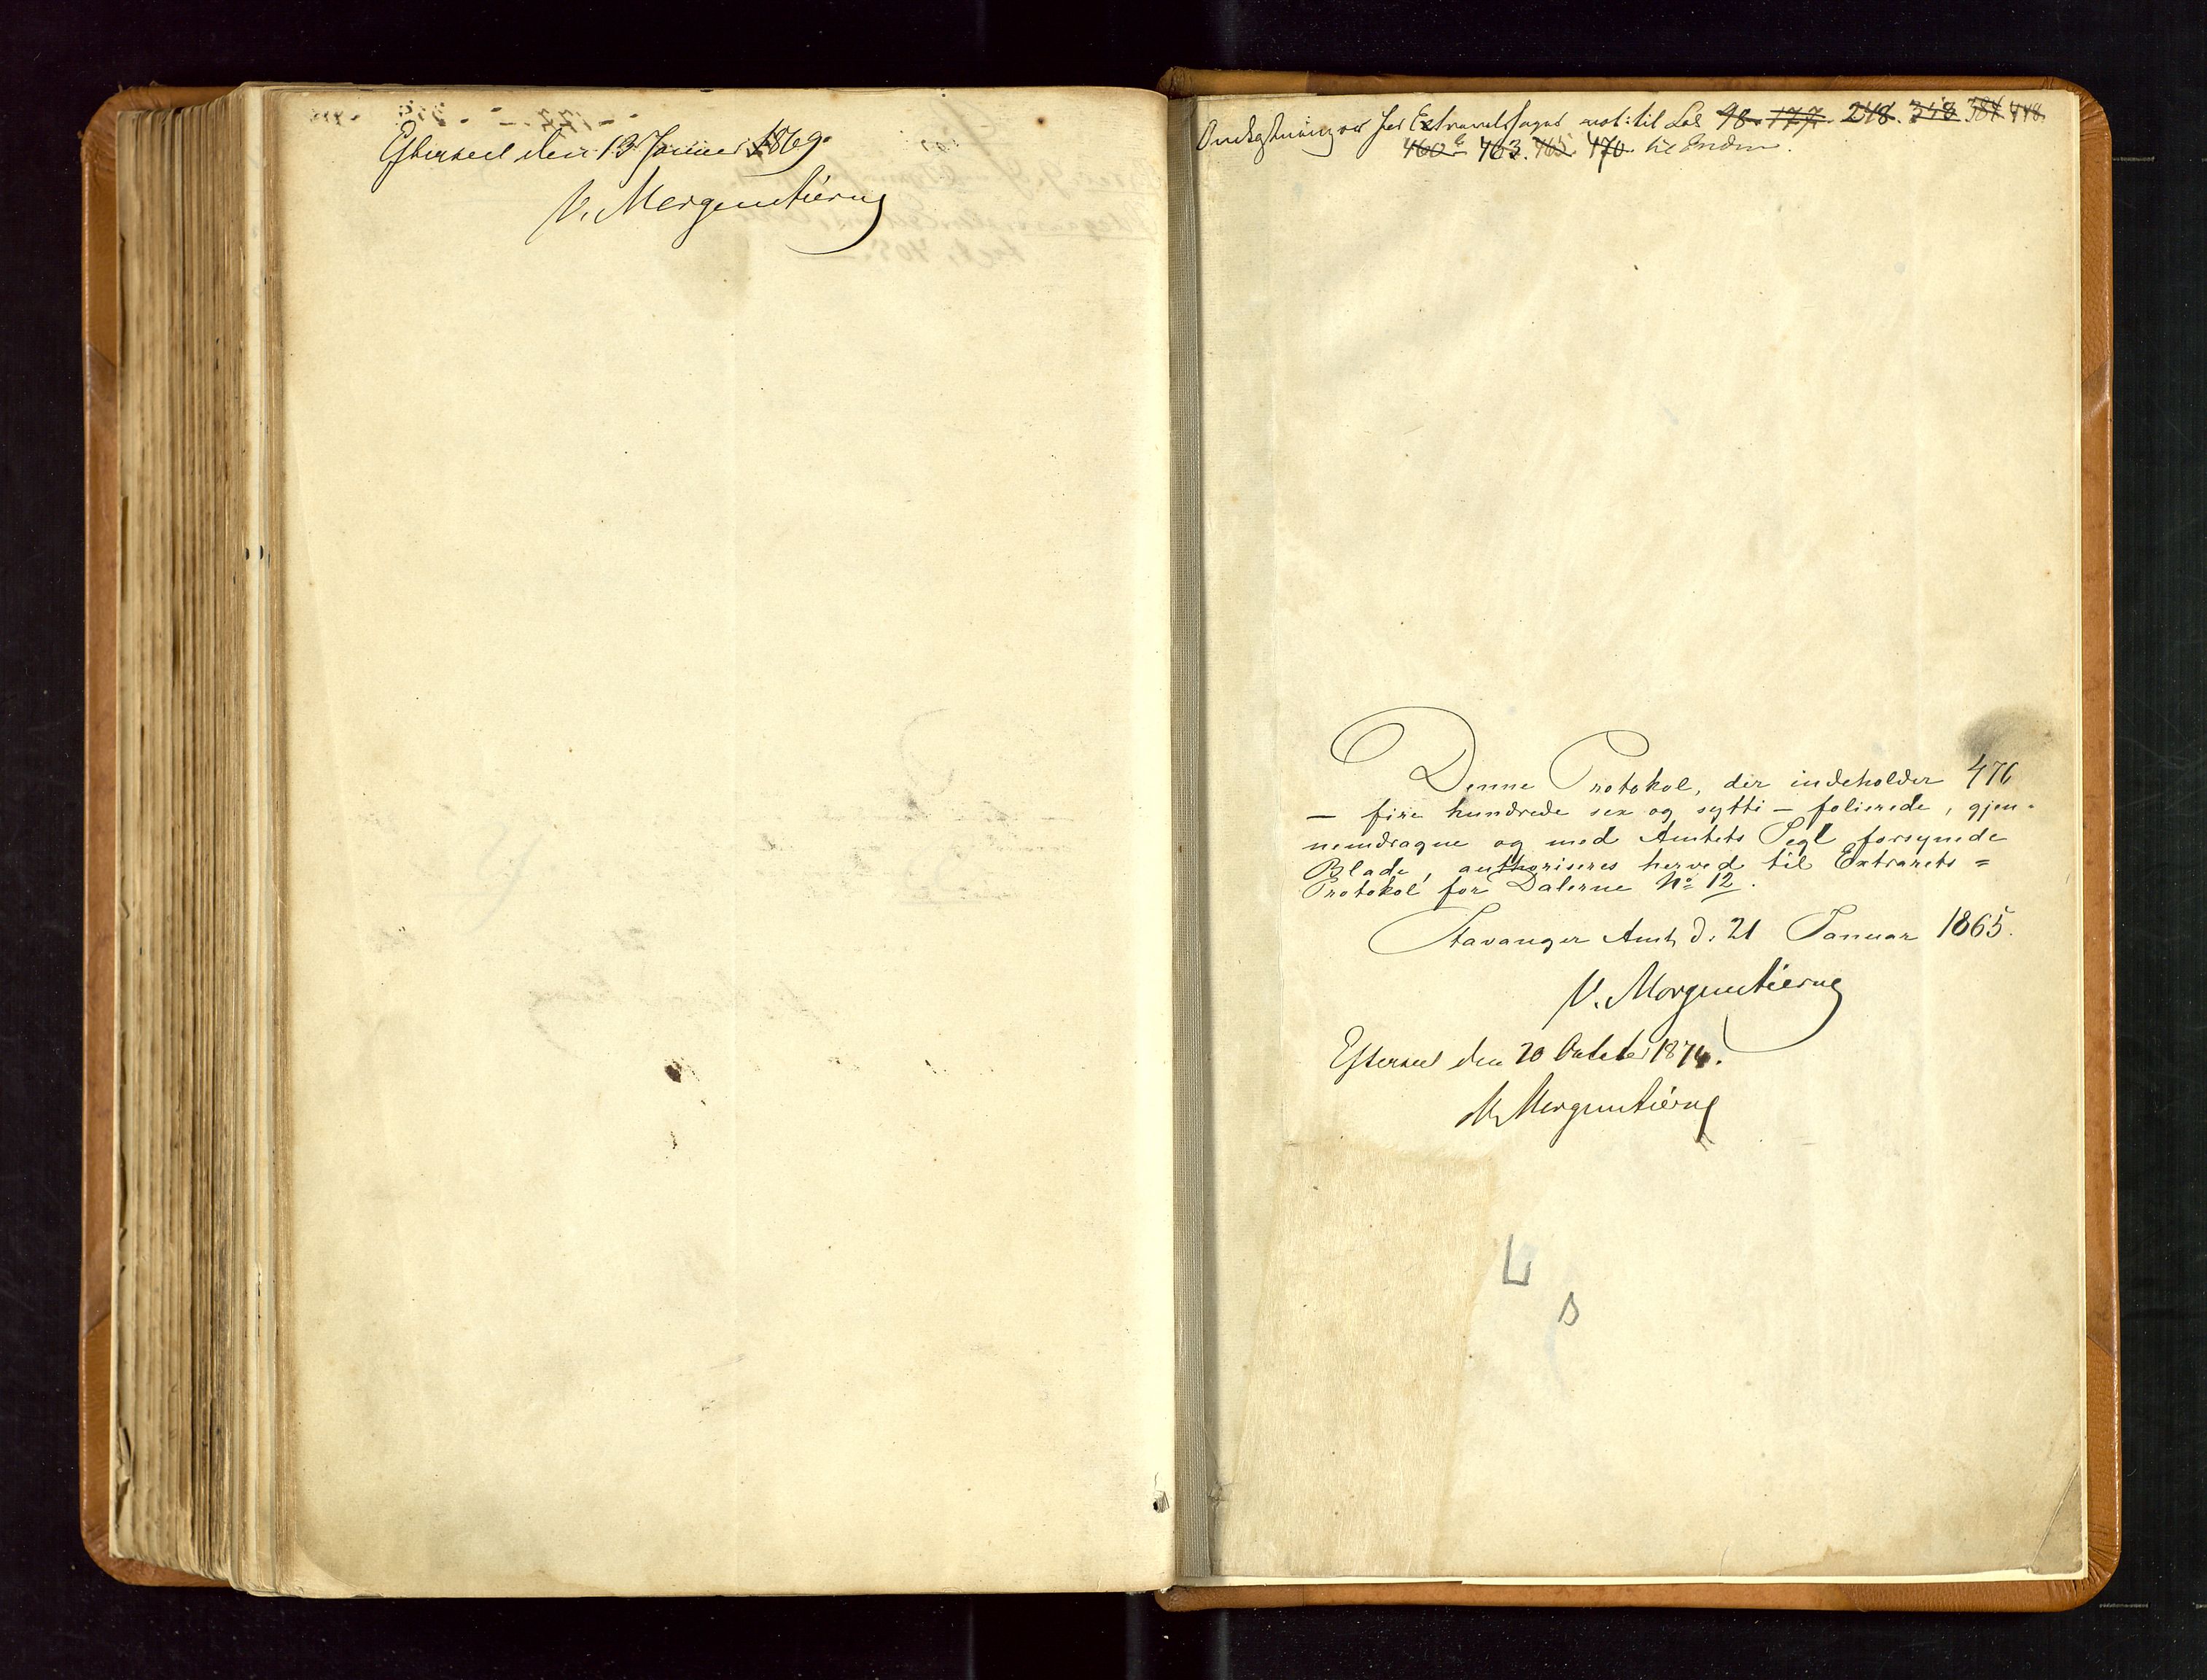 Efterseet den 13 Januar 1869.
V. Morgenstierne
for Extraretssager not: til Fol 98. 177. 248. 348 384 448.
460 b 463. 465. 470. til Enden.
Denne Protokol, der indeholder 476
— fire hundrede sex og sytti — folierede, gjen-
nemdragne og med Amtets Segl forsynede
Blade, authoriseres herved til Extrarets =
Protokol for Dalerne No 12.
Stavanger Amt, d. 21 Januar 1865.
V. Morgenstierne
Efterseet den 20 Oktober 1874.
V. Morgenstierne